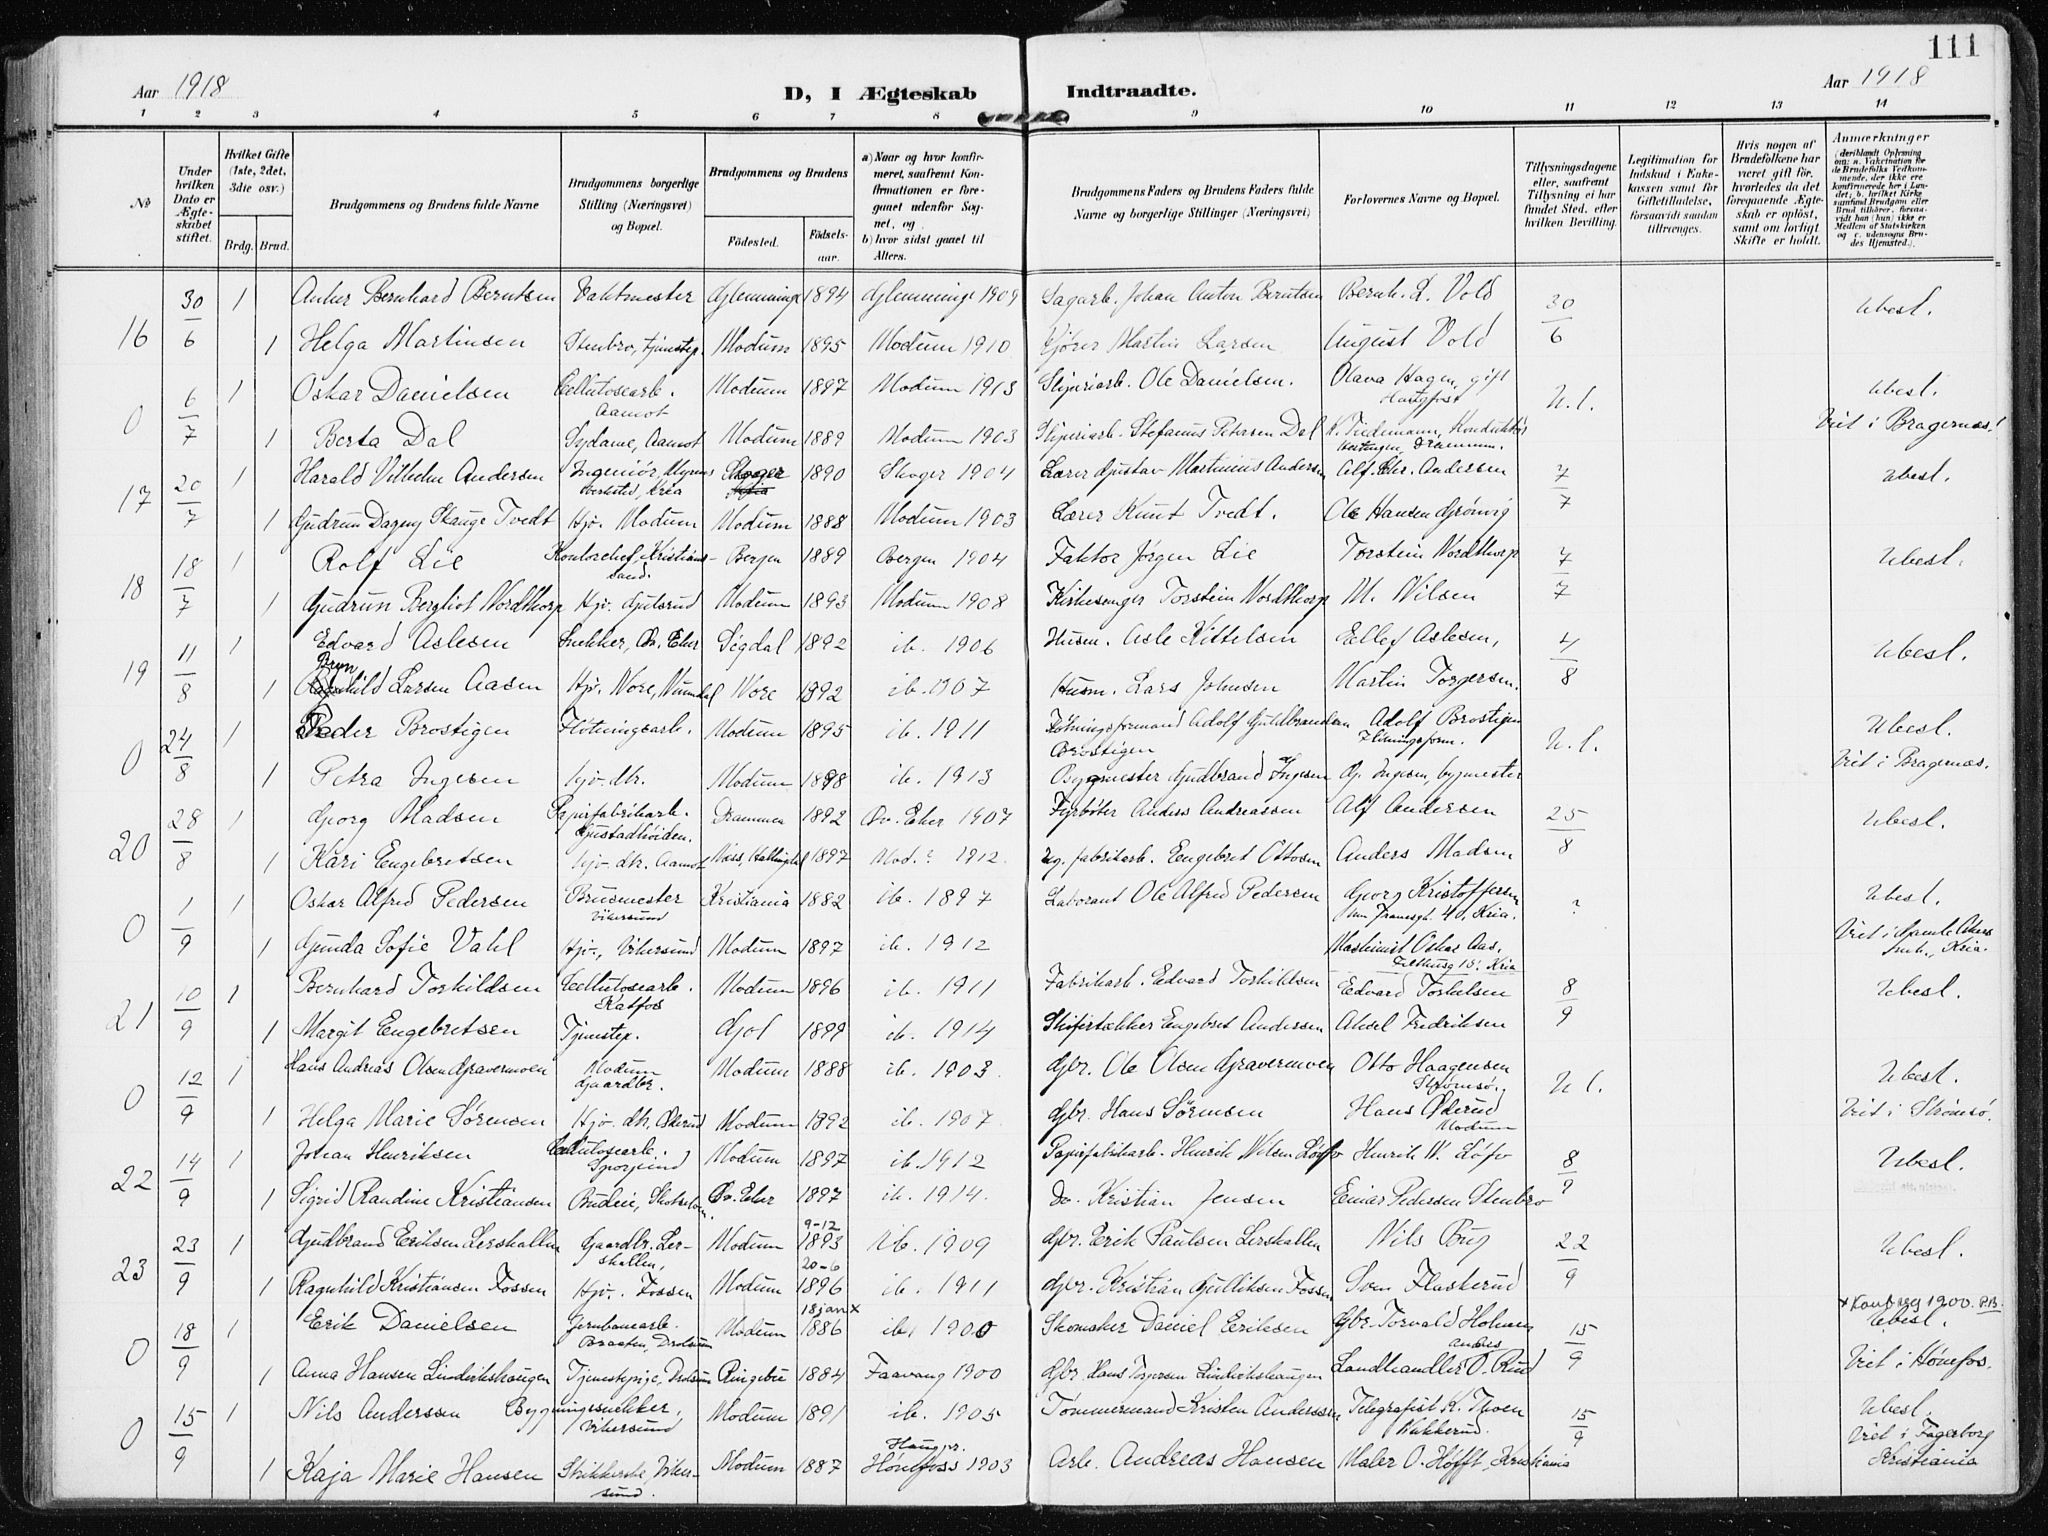 111
Aar 1918
D, I Ægteskab Indtraadte.
Aar 1918
1 2 3 4 5 6 7 8 9 10 11 12 13 14
No
Under hvilken Dato er Ægteskabet stiftet.
Hvilket Gifte (1ste, 2det, 3die osv.)
Brdg. Brud.
Brudgommens og Brudens fulde Navne
Brudgommens borgerlige Stilling (Næringsvei) og Bopæl.
Brudgommens og Brudens
Födested. Födsels-aar.
a) Naar og hvor konfirmeret, saafremt Konfirmationen er foregaaet udenfor Sognet, og
b) hvor sidst gaaet til Alters.
Brudgommens Faders og Brudens Faders fulde Navne og borgerlige Stillinger (Næringsvei)
Forlovernes Navne og Bopæl.
Tillysningsdagene eller, saafremt Tillysning ei har fundet Sted, efter hvilken Bevilling.
Legitimation for Indskud i Enkekassen samt for Giftetilladelse, forsaavidt saadan tiltrænges.
Hvis nogen af Brudefolkene har været gift før, hvorledes da det foregaaende Ægteskab er oplöst, samt om lovligt Skifte er holdt.
Anmærkninger (deriblandt Oplysning om: a. Vakcination for de Brudefolks Vedkommende, der ikke ere konfirmerede her i Landet; b. hvilket Kirkesamfund Brudgom eller Brud tilhörer, forsaavidt han (hun) ikke er Medlem af Statskirken og c. udensogns Brudes Hjemsted.)
16 30/6 1 Bernhard Berntsen Vaktmester Glemminge 1894 Glemminge 1909 Sagarb. Johan Anton Berntsen Bernh. L. Vold 30/6 Ubesl.
1 Helga Martinsen Stenbro, tjenestep. Modum 1895 Modum 1910 Kjörer Martin Larsen August Vold
0 6/7 1 Oskar Danielsen Cellulosearb. Aamot Modum 1897 Modum 1913 Sliperiarb. Ole Danielsen. Olava Hagen, gift U. l. Ubesl.
1 Berta Dal Sydame, Aamot Modum 1889 Modum 1903 Sliperiarb. Stefanus Petersen Dal K. Tiedemann, Konduktör Drammen. Viet i Bragernæs!
17 20/7 1 Harald Vilhelm Andersen Ingeniör, Myrens Verksted, Kria Skoger 1890 Skoger 1904 Lærer Gustav Martinius Andersen Alf Chr. Andersen 7/7 Ubesl.
1 Gudrun Dagny Skauge Tvedt Hjv. Modum Modum 1888 Modum 1903 Lærer Knut Tvedt. Ole Hansen Grönvig
18 18/7 1 Rolf Lie Kontorchef, Kristianssand. Bergen 1889 Bergen 1904 Faktor Jörgen Lie Torstein Nordthorp 7/7 Ubesl.
1 Gudrun Bergliot Nordthorp Hjv. Gulsrud Modum 1893 Modum 1908 Kirkesanger Torstein Nordthorp M. Nilsen
19 11/8 1 Edvard Aslesen Snekker, Öv. Eker Sigdal 1892 ib. 1906 Husm. Asle Kittelsen Ellef Aslesen, 4/8 Ubesl.
1 Brynhild Larsen Aasen Hjv. Nore, Numedal Nore 1892 ib. 1907 Husm. Lars Johnsen Martin Torgersen.
0 24/8 1 Peder Brostigen Flötningsarb. Modum 1895 ib. 1911 Flötningsformand Adolf Guldbrandsen Brostigen Adolf Brostigen Flötningsform. U. l. Ubesl.
1 Petra Ingesen Hjv. dtr. Modum 1898 ib. 1913 Bygmester Gudbrand Ingesen G. Ingesen, bygmester Viet i Bragernæs.
20 28/8 1 Georg Madsen Papirfabrikarb. Gustadhöiden. Drammen 1892 Öv. Eker 1907 Fyrböter Anders Andreassen Alf Andersen 25/8 Ubesl.
1 Kari Engebretsen Hjv. dtr. Aamot Næss, Hallingdal 1897 Mod. ? 1912 fabrikarb. Engebret Ottosen Anders Madsen
0 1/9 1 Oskar Alfred Pedersen Brusmester Vikersund Kristiania 1882 ib. 1897 Laborant Ole Alfred Pedersen Georg Kristoffersen 40. Kria. ? Ubesl.
1 Gunda Sofie Vahl Hjv., Vikersund Modum 1897 ib. 1912 Maskinist Oskar Aas. 15. Kria Viet i Gamle Akers Kria.
21 10/9 1 Bernhard Torkildsen Cellulosearb. Katfos Modum 1896 ib. 1911 Fabrikarb. Edvard Torkildsen Edvard Torkelsen 8/9 Ubesl.
1 Margit Engebretsen Tjenestep. Gol 1899 ib. 1914 Skifertækker Engebret Andersen Aksel Fredriksen
0 12/9 1 Hans Andreas Olsen Gravermoen Modum Gaardbr. Modum 1888 ib. 1903. Gbr. Ole Olsen Gravermoen Otto Haagensen Strømsø. U. l. Ubesl.
1 Helga Marie Sörensen Hjv. dtr, Öderud Modum 1892 ib. 1907. Gbr. Hans Sörensen Hans Öderud Modum Viet i Strömsö.
22 14/9 1 Johan Henriksen Cellulosearb. Modum 1897 ib. 1912 Papirfabrikarb. Henrik Nilsen Henrik N. 8/9 Ubesl.
1 Sigrid Randine Kristiansen Budeie, Öv. Eker 1897 ib. 1914. Do. Kristian Jensen Einar Pedersen Stenbro
23 23/9 1 Gudbrand Eriksen Lerskallen Gaardbr. Lerskallen, Modum 9-12 1893 ib. 1909 Gbr. Erik Paulsen Lerskallen Nils Bug 22/9 Ubesl.
1 Ragnhild Kristiansen Fossen Hjv. Fossen Modum 20-6 1896 ib. 1911 Gbr. Kristian Gulliksen Fossen Sven Flaskerud
0 18/9 1 Erik Danielsen Jernbanearb. Braaten, Drolsum Modum 18 jan x 1886 ib. 1900 Skomaker Daniel Eriksen Gbr. Torvald Holmen 15/9 x Konf. 1900. P.B. Ubesl.
1 Anna Hansen Linderkshaugen Tjenestepige, Drolsum Ringebu 1884 Faavang 1900 Gbr. Hans Torgersen Linderkshaugen Landhandler O. Rud Viet i Hönefos.
0 15/9 1 Nils Anderssen Bygningssnekker, Vikersund Modum 1891 ib. 1905 Tömmermand Kristen Anderssen Telegrafist K. Moen 15/9 Ubesl. Viet i Fagerborg Kristiania
1 Kaja Marie Hansen Strikkerske, Vikersund. Modum 1887 Haug pr. Hönefoss 1903 Arb. Andreas Hansen Maler O. Höfft, Kristiania